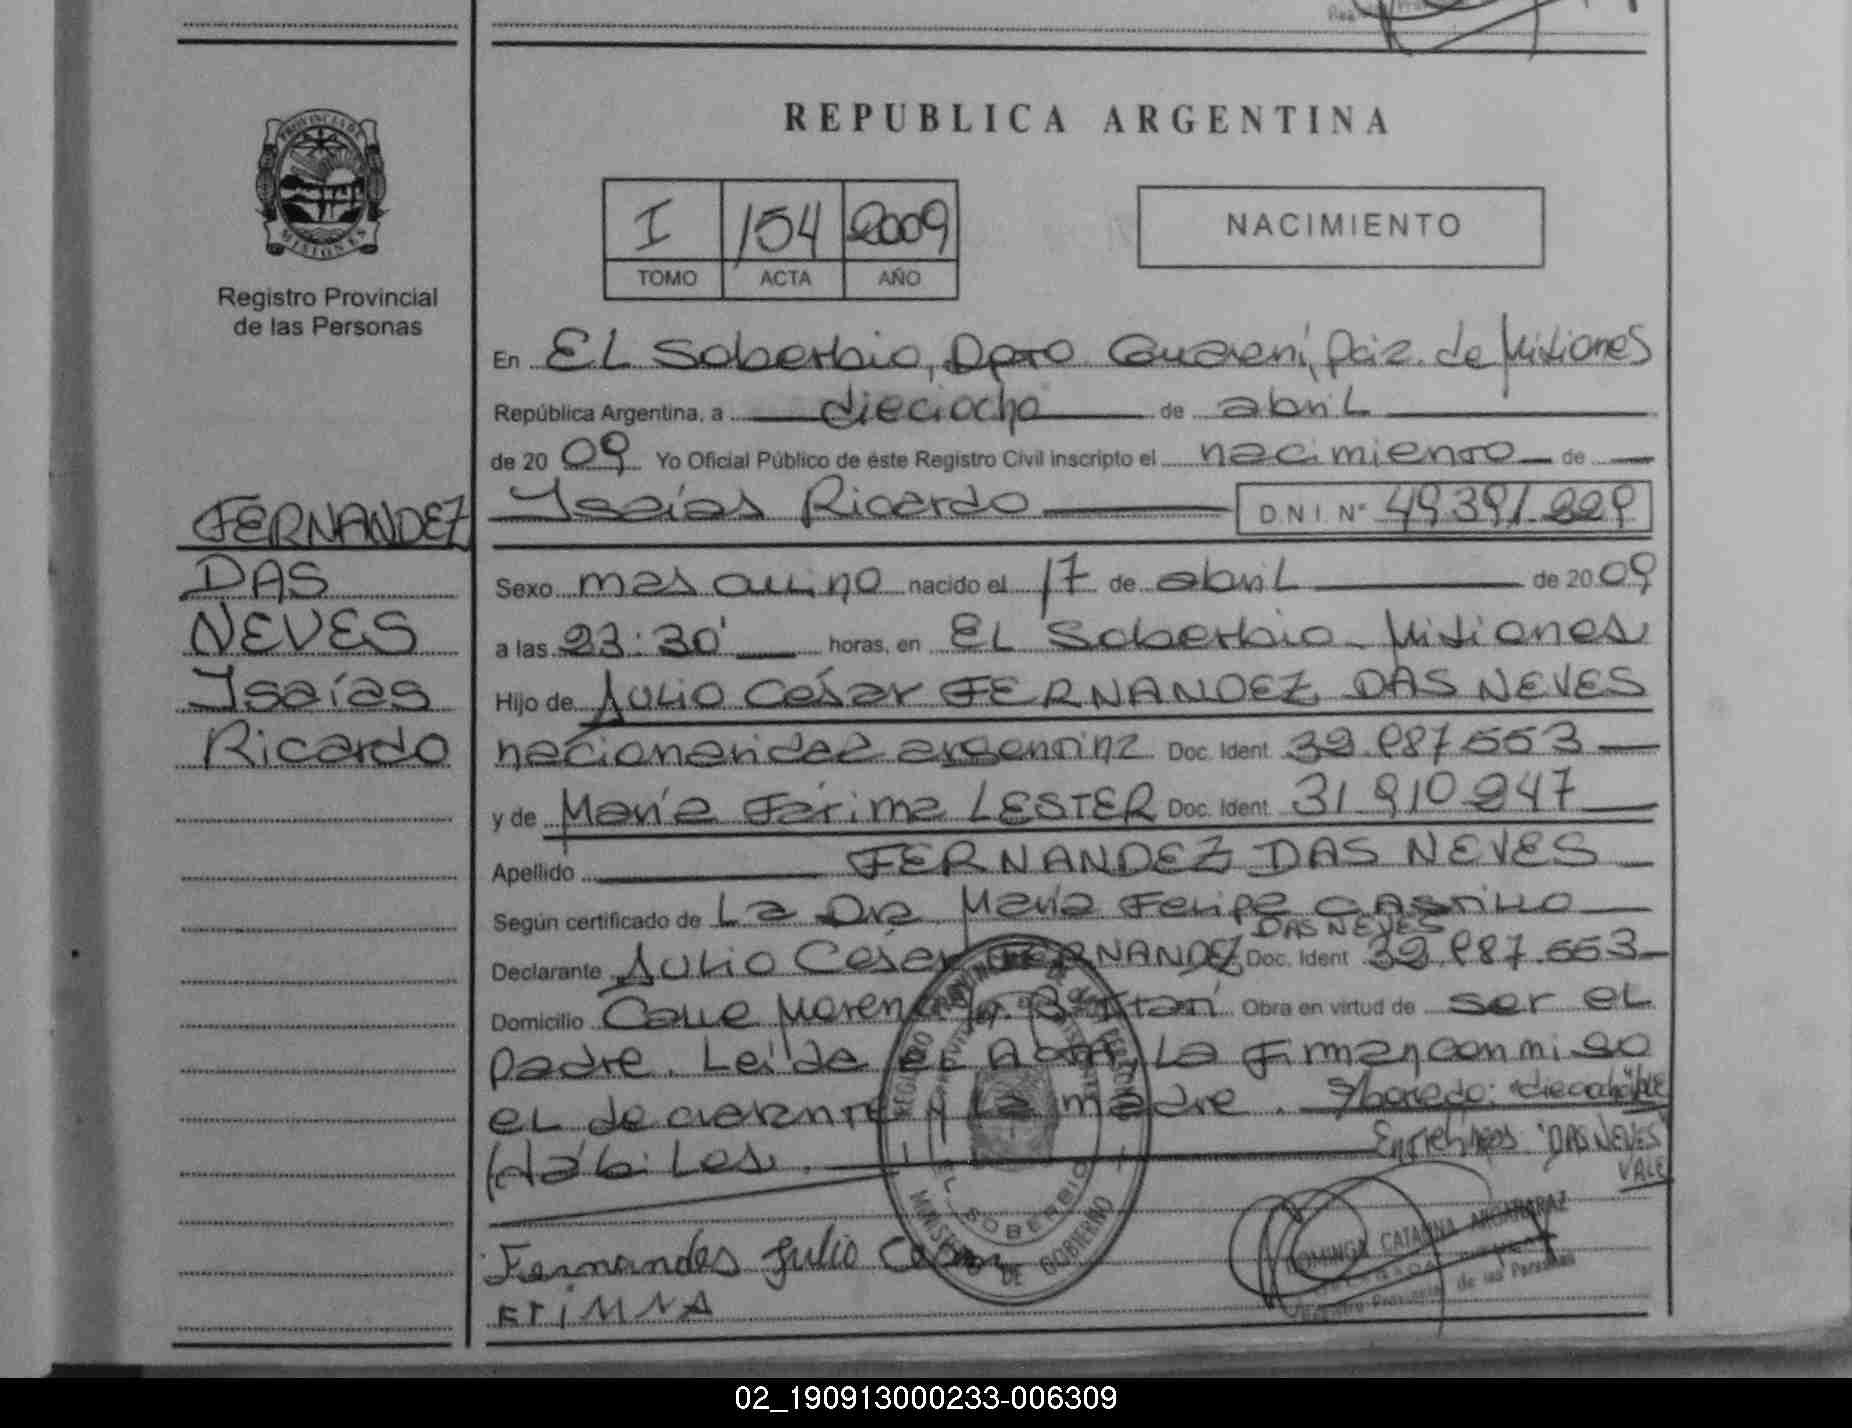 REPUBLICA ARGENTINA
PROVINCIA DE
MISIONES
Registro Provincial
de las Personas
I 154 2009
TOMO ACTA AÑO
NACIMIENTO
En EL Soberbio, Dpto Guaraní, Pcia. de Misiones
República Argentina, a dieciocho de abril
de 2009 Yo Oficial Público de éste Registro Civil inscripto el nacimiento de
Isaías Ricardo D.N.I. Nº 49.391.229
FERNANDEZ
DAS
NEVES
Isaías
Ricardo
Sexo masculino nacido el 17 de abril de 2009
a las 23:30' horas, en EL Soberbio - Misiones
Hijo de Julio César FERNANDEZ DAS NEVES
nacionalidad argentina Doc. Ident. 32.887.553
y de María Fátima LESTER Doc. Ident. 31.910.247
Apellido FERNANDEZ DAS NEVES
Según certificado de La Dra María Felipa CASTILLO
DAS NEVES
Declarante Julio César FERNANDEZ Doc. Ident. 32.887.553
Domicilio Calle Moreno Obra en virtud de ser el
padre. Leída el Acta, La firman conmigo
el declarante y La madre. S/borrado: "dieciocho" VALE
Hábiles. Entrelíneas "DAS NEVES"
VALE
REGISTRO PROVINCIAL DE
EL SOBERBIO
MINISTERIO DE GOBIERNO
Fernandes Julio Cesar
DOMINGA CATALINA ARGARAÑAZ
Registro Provincial de las Personas
02_190913000233-006309